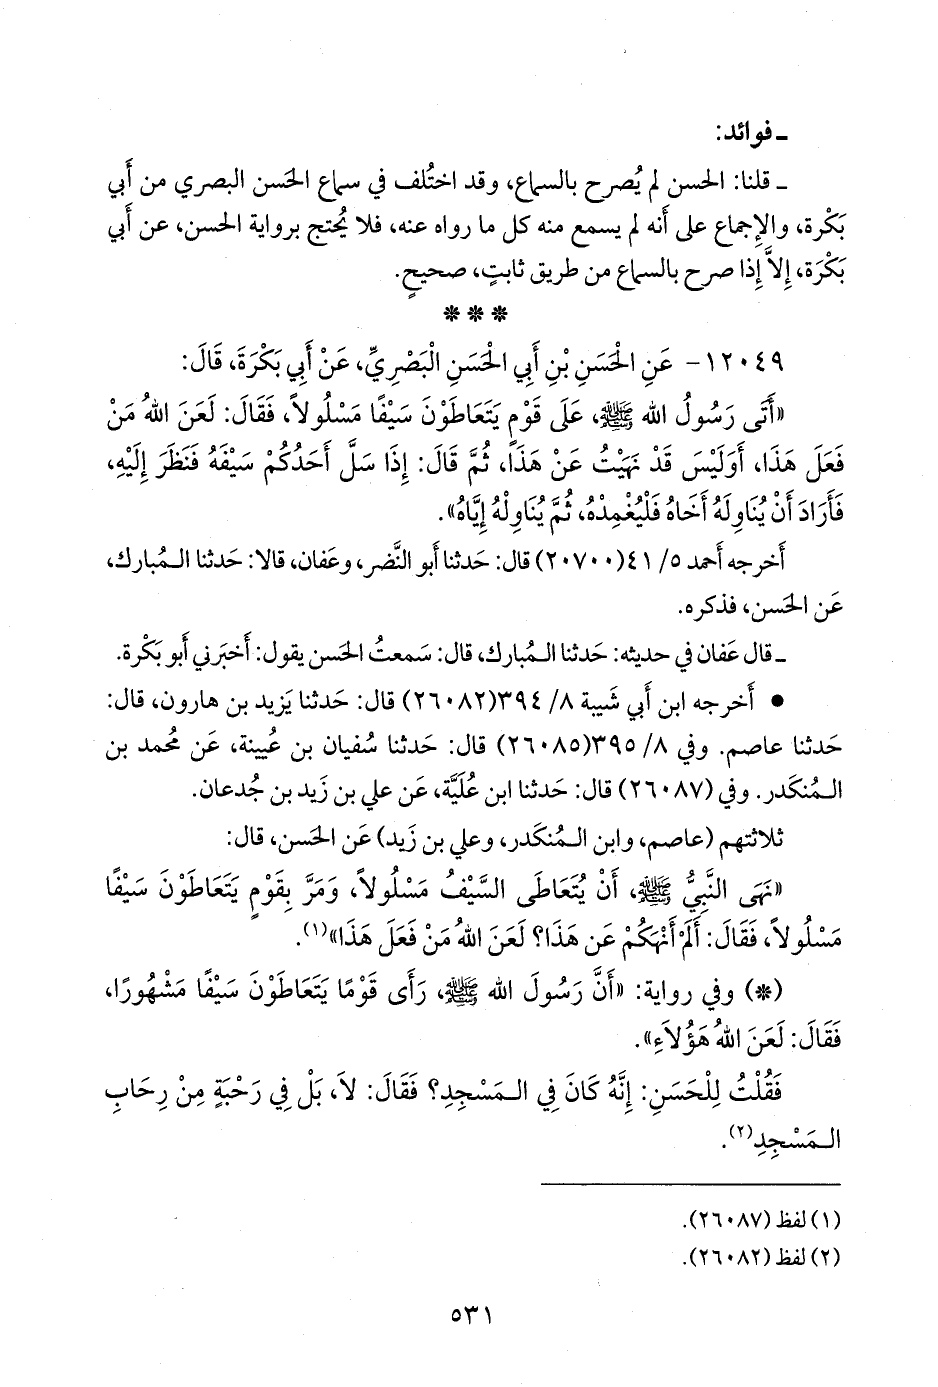 ـ فوائد:
ـ قلنا: الحسن لم يُصرح بالسماع، وقد اختُلف في سماع الحَسن البصري من أَبي
بَكْرة، والإِجماع على أَنه لم يسمع منه كل ما رواه عنه، فلا يُحتج برواية الحسن، عن أَبي
بَكْرَة، إِلاَّ إِذا صرح بالسماع من طريق ثابتٍ، صحيحٍ.
* * *
١٢٠٤٩- عَنِ الْحَسَنِ بْنِ أَبِي الْحَسَنِ الْبَصْرِيِّ، عَنْ أَبِي بَكْرَةَ، قَالَ:
«أَتَى رَسُولُ الله ﷺ، عَلَى قَوْمٍ يَتَعَاطَوْنَ سَيْفًا مَسْلُولاً، فَقَالَ: لَعَنَ اللهُ مَنْ
فَعَلَ هَذَا، أَوَلَيْسَ قَدْ نَهَيْتُ عَنْ هَذَا، ثُمَّ قَالَ: إِذَا سَلَّ أَحَدُكُمْ سَيْفَهُ فَنَظَرَ إِلَيْهِ،
فَأَرَادَ أَنْ يُنَاوِلَهُ أَخَاهُ فَلْيُغْمِدْهُ، ثُمَّ يُنَاوِلْهُ إِيَّاهُ».
أَخرجه أَحمد ٥/ ٤١(٢٠٧٠٠) قال: حَدثنا أَبو النَّضر، وعَفان، قالا: حَدثنا الـمُبارك،
عَن الحَسن، فذكره.
ـ قال عَفان في حديثه: حَدثنا الـمُبارك، قال: سَمعتُ الحَسن يقول: أَخبَرني أَبو بَكْرة.
• أَخرجه ابن أَبي شَيبة ٨/ ٣٩٤(٢٦٠٨٢) قال: حَدثنا يَزيد بن هارون، قال:
حَدثنا عاصم. وفي ٨/ ٣٩٥(٢٦٠٨٥) قال: حَدثنا سُفيان بن عُيينة، عَن مُحمد بن
الـمُنكَدر. وفي (٢٦٠٨٧) قال: حَدثنا ابن عُلَيَّة، عَن علي بن زَيد بن جُدعان.
ثلاثتهم (عاصم، وابن الـمُنكَدر، وعلي بن زَيد) عَن الحَسن، قال:
«نَهَى النَّبِيُّ ﷺ، أَنْ يُتَعَاطَى السَّيْفُ مَسْلُولاً، وَمَرَّ بِقَوْمٍ يَتَعَاطَوْنَ سَيْفًا
مَسْلُولاً، فَقَالَ: أَلَمْ أَنْهَكُمْ عَن هَذَا؟ لَعَنَ اللهُ مَنْ فَعَلَ هَذَا»(١).
(*) وفي رواية: «أَنَّ رَسُولَ الله ﷺ، رَأَى قَوْمًا يَتَعَاطَوْنَ سَيْفًا مَشْهُورًا،
فَقَالَ: لَعَنَ اللهُ هَؤُلاَءِ».
فَقُلْتُ لِلْحَسَنِ: إِنَّهُ كَانَ فِي الـمَسْجِدِ؟ فَقَالَ: لاَ، بَلْ فِي رَحْبَةٍ مِنْ رِحَابِ
الـمَسْجِدِ(٢).
(١) لفظ (٢٦٠٨٧).
(٢) لفظ (٢٦٠٨٢).
٥٣١